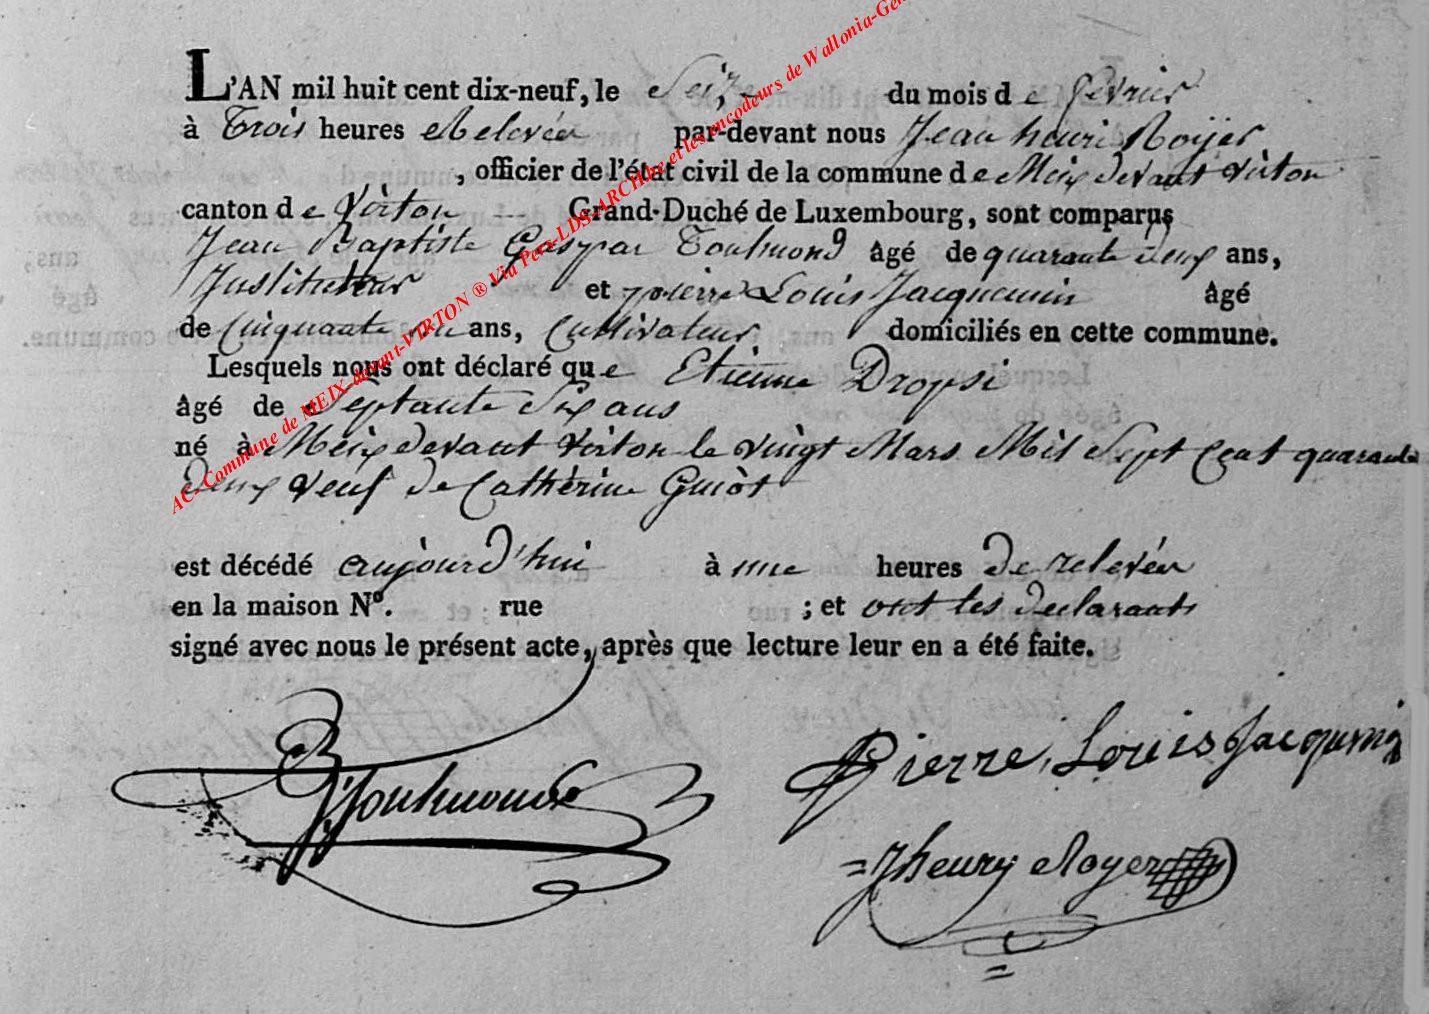 L'AN mil huit cent dix-neuf, le Seize du mois de fevrier
à Trois heures Relevée par-devant nous Jean henri Roijer
, officier de l'état civil de la commune de Meix devant Virton
canton de Virton Grand-Duché de Luxembourg, sont comparus
Jean Baptiste Gaspar Toulmond âgé de quarante deux ans,
Instituteur et pierre Louis Jacquemin âgé
de Cinquante un ans, Cultivateur domiciliés en cette commune.
Lesquels nous ont déclaré que Etienne Dropsi
âgé de Septante Six ans
né à Meix devant Virton le vingt Mars Mil Sept Cent quarante
deux veuf de Cathérine Guiot
est décédé aujourd'hui à une heures de relevée
en la maison N°. rue ; et ont les declarants
signé avec nous le présent acte, après que lecture leur en a été faite.
Toulmond
Pierre Louis Jacquemin
= Jhenry Royer
AC-Commune de MEIX-devant-VIRTON ® Via Pers-LDS-ARCHbe et les encodeurs de Wallonia-Gen